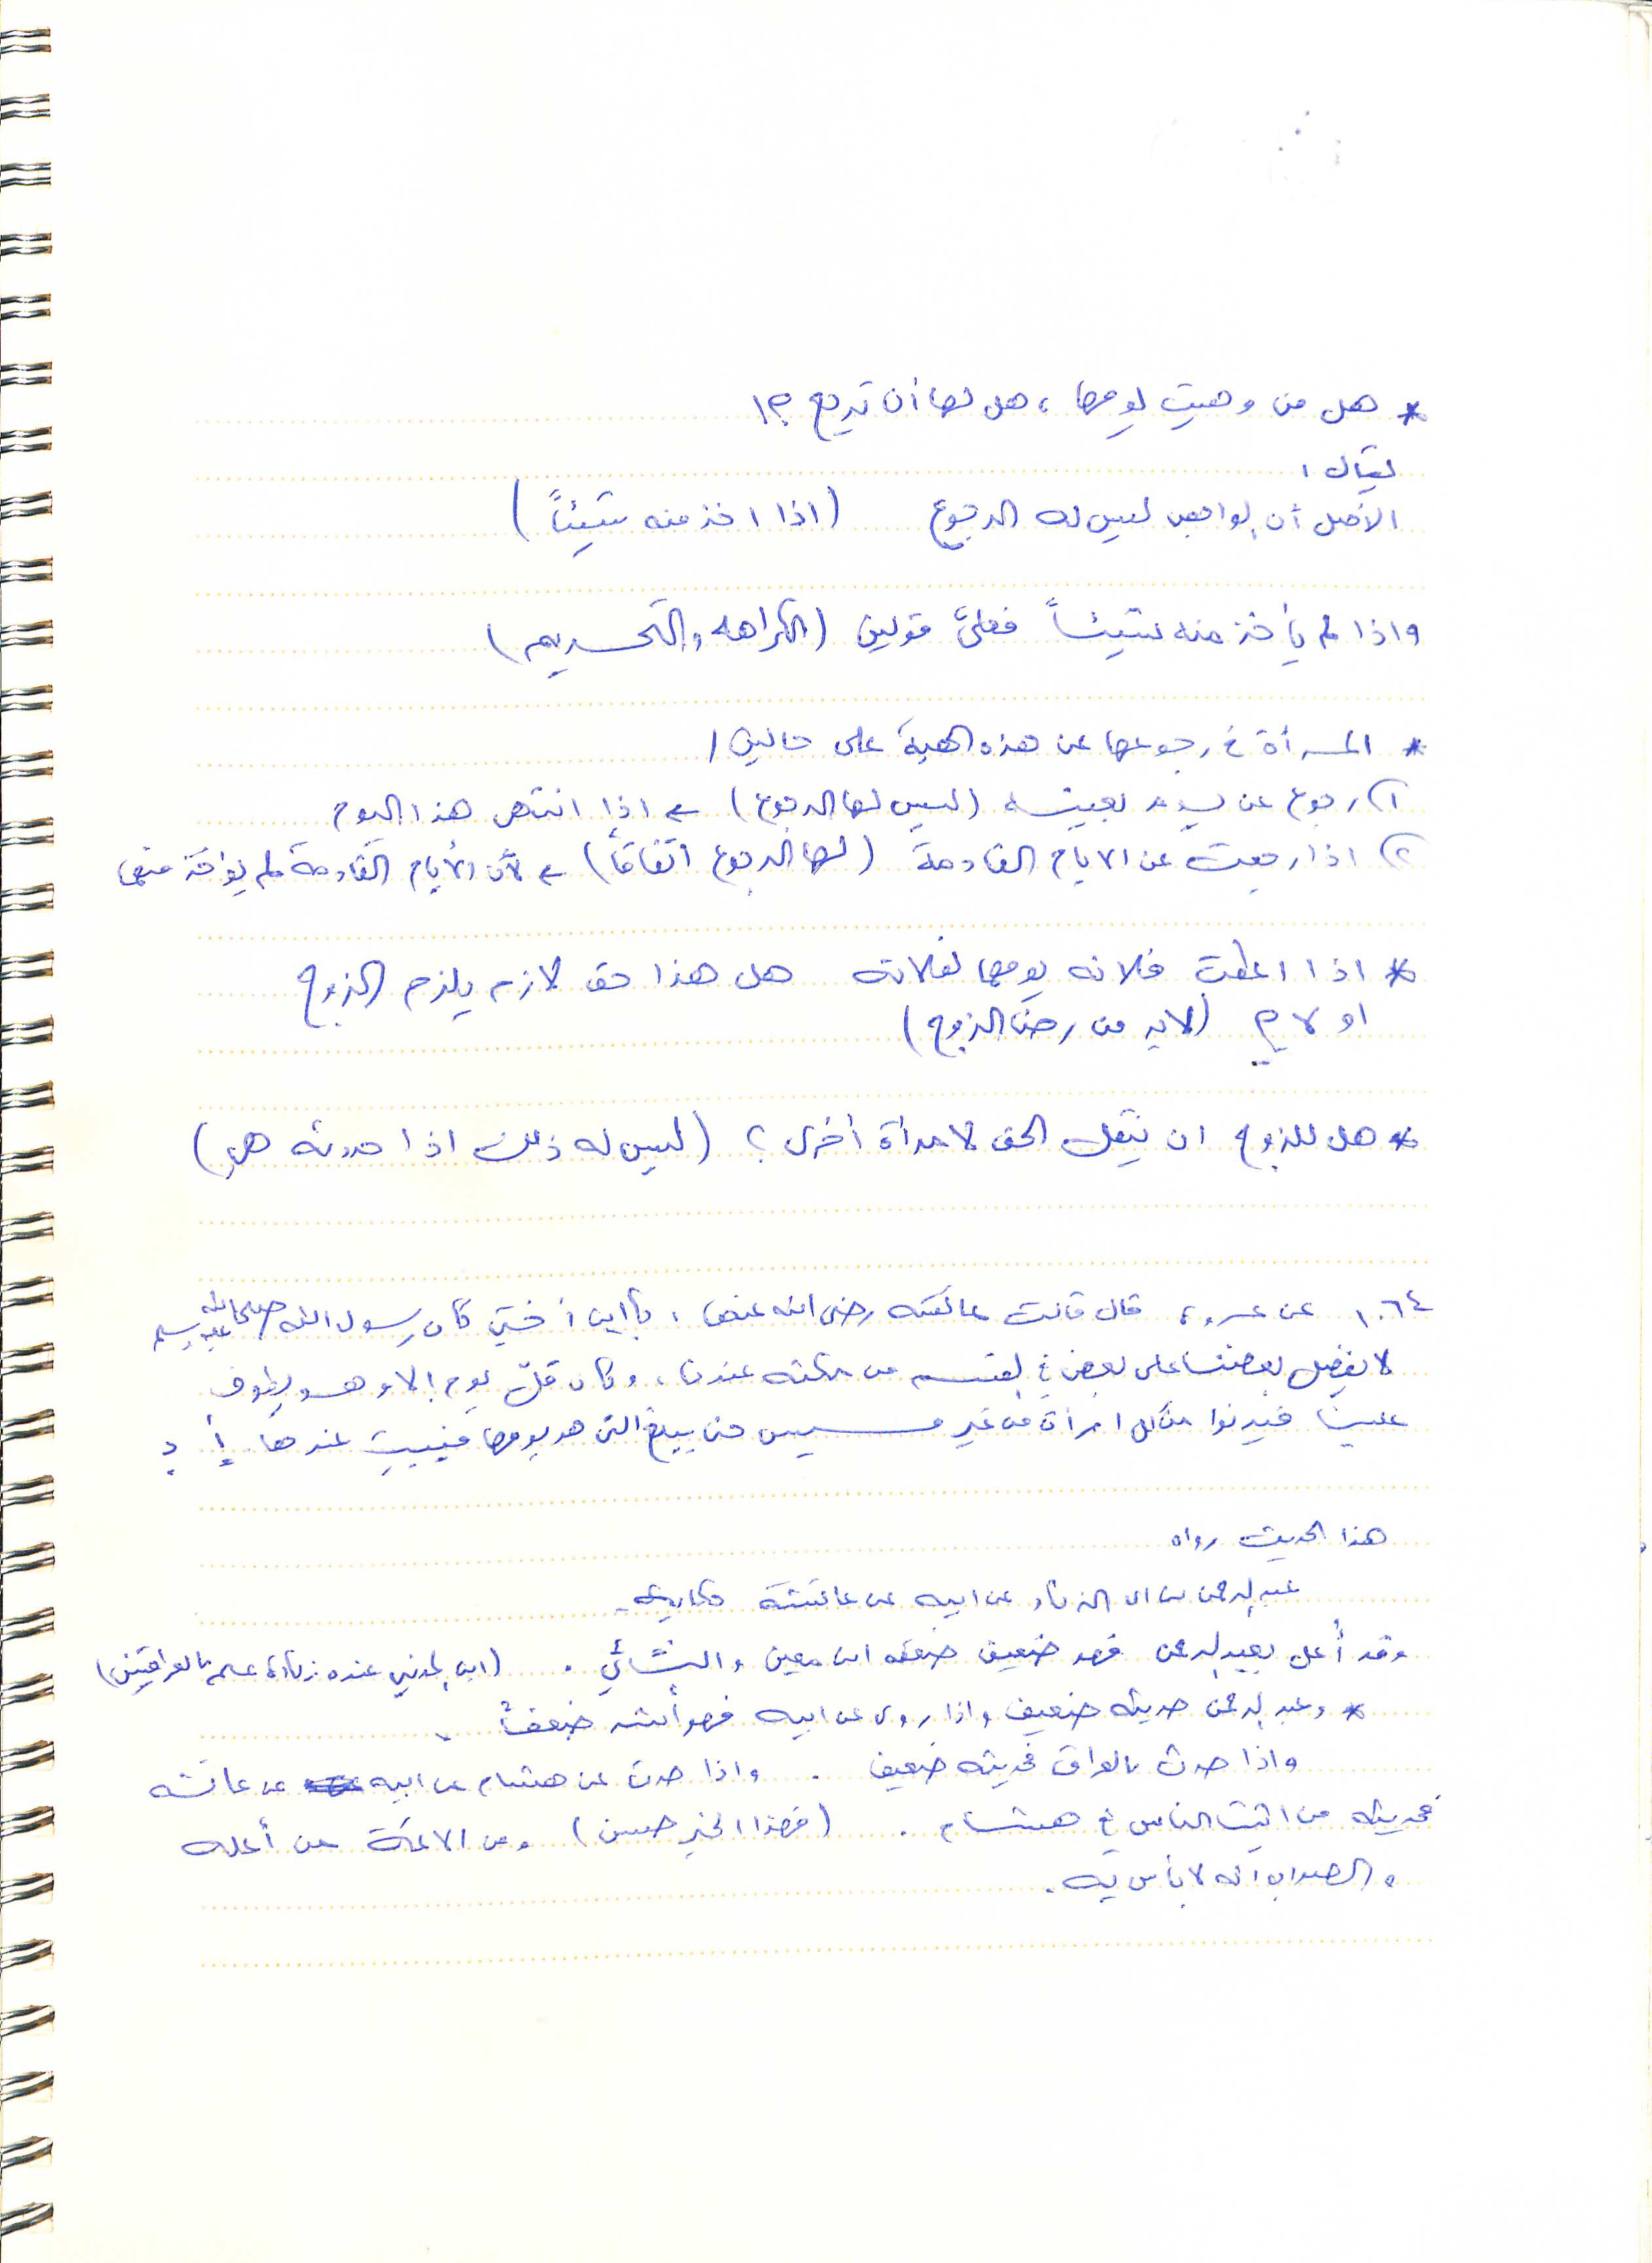 * هل من وهبت يومها ، هل لها أن ترجع ؟!
يقال :
الأصل أن الواهب ليس له الرجوع (اذا اخذ منه شيئاً)
واذا لم يأخذ منه شيئاً فعلى قولين (الكراهه والتحريم)
* المرأة في رجوعها عن هذه الهبة على حالين /
١) رجوع عن يوم بعينه (ليس لها الرجوع) ← اذا انتهى هذا اليوم
٢) اذا رجعت عن الايام القادمة (لها الرجوع اتفاقاً) ← لأن الأيام القادمة لم يؤاخذ منها
* اذا اعطت فلانه يومها لفلانة هل هذا حق لازم يلزم الزوج
او لا ؟ (لابد من رضى الزوج)
* هل للزوج ان ينقل الحق لامرأة أخرى ؟ (ليس له ذلك اذا حددته هي)
١٠٦٤ عن عروة قال قالت عائشه رضي الله عنها : يا ابن أختي كان رسول الله صلى الله عليه وسلم
لا يفضل بعضنا على بعض في القسم من مكثه عندنا ، وكان قل يوم إلا وهو يطوف
علينا فيدنوا من كل امرأة من غير مسيس حتى يبلغ التي هو يومها فيبيت عندها . أ د
هذا الحديث رواه
عبدالرحمن بن ابي الزناد عن ابيه عن عائشة
وقد أُعل بعبدالرحمن فهو ضعيف ضعفه ابن معين والنسائي . (ابن المديني عنده زيادة علم بالعراقيين)
* وعبدالرحمن حديثه ضعيف واذا روى عن ابيه فهو أشد ضعفاً .
واذا حدث بالعراق فحديثه ضعيف . واذا حدث عن هشام عن ابيه عن عائشه
فحديثه من اثبت الناس في هشام . (فهذا الخبر حسن) ومن الائمة من أعله
والصواب انه لا بأس به .